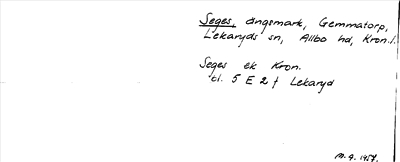 Seges, ängsmark, Gemmatorp,
Lekaryds sn, Allbo hd, Kron.l.
Seges ek Kron.
cl. 5 E 2 f Lekaryd
M.q. 1957.